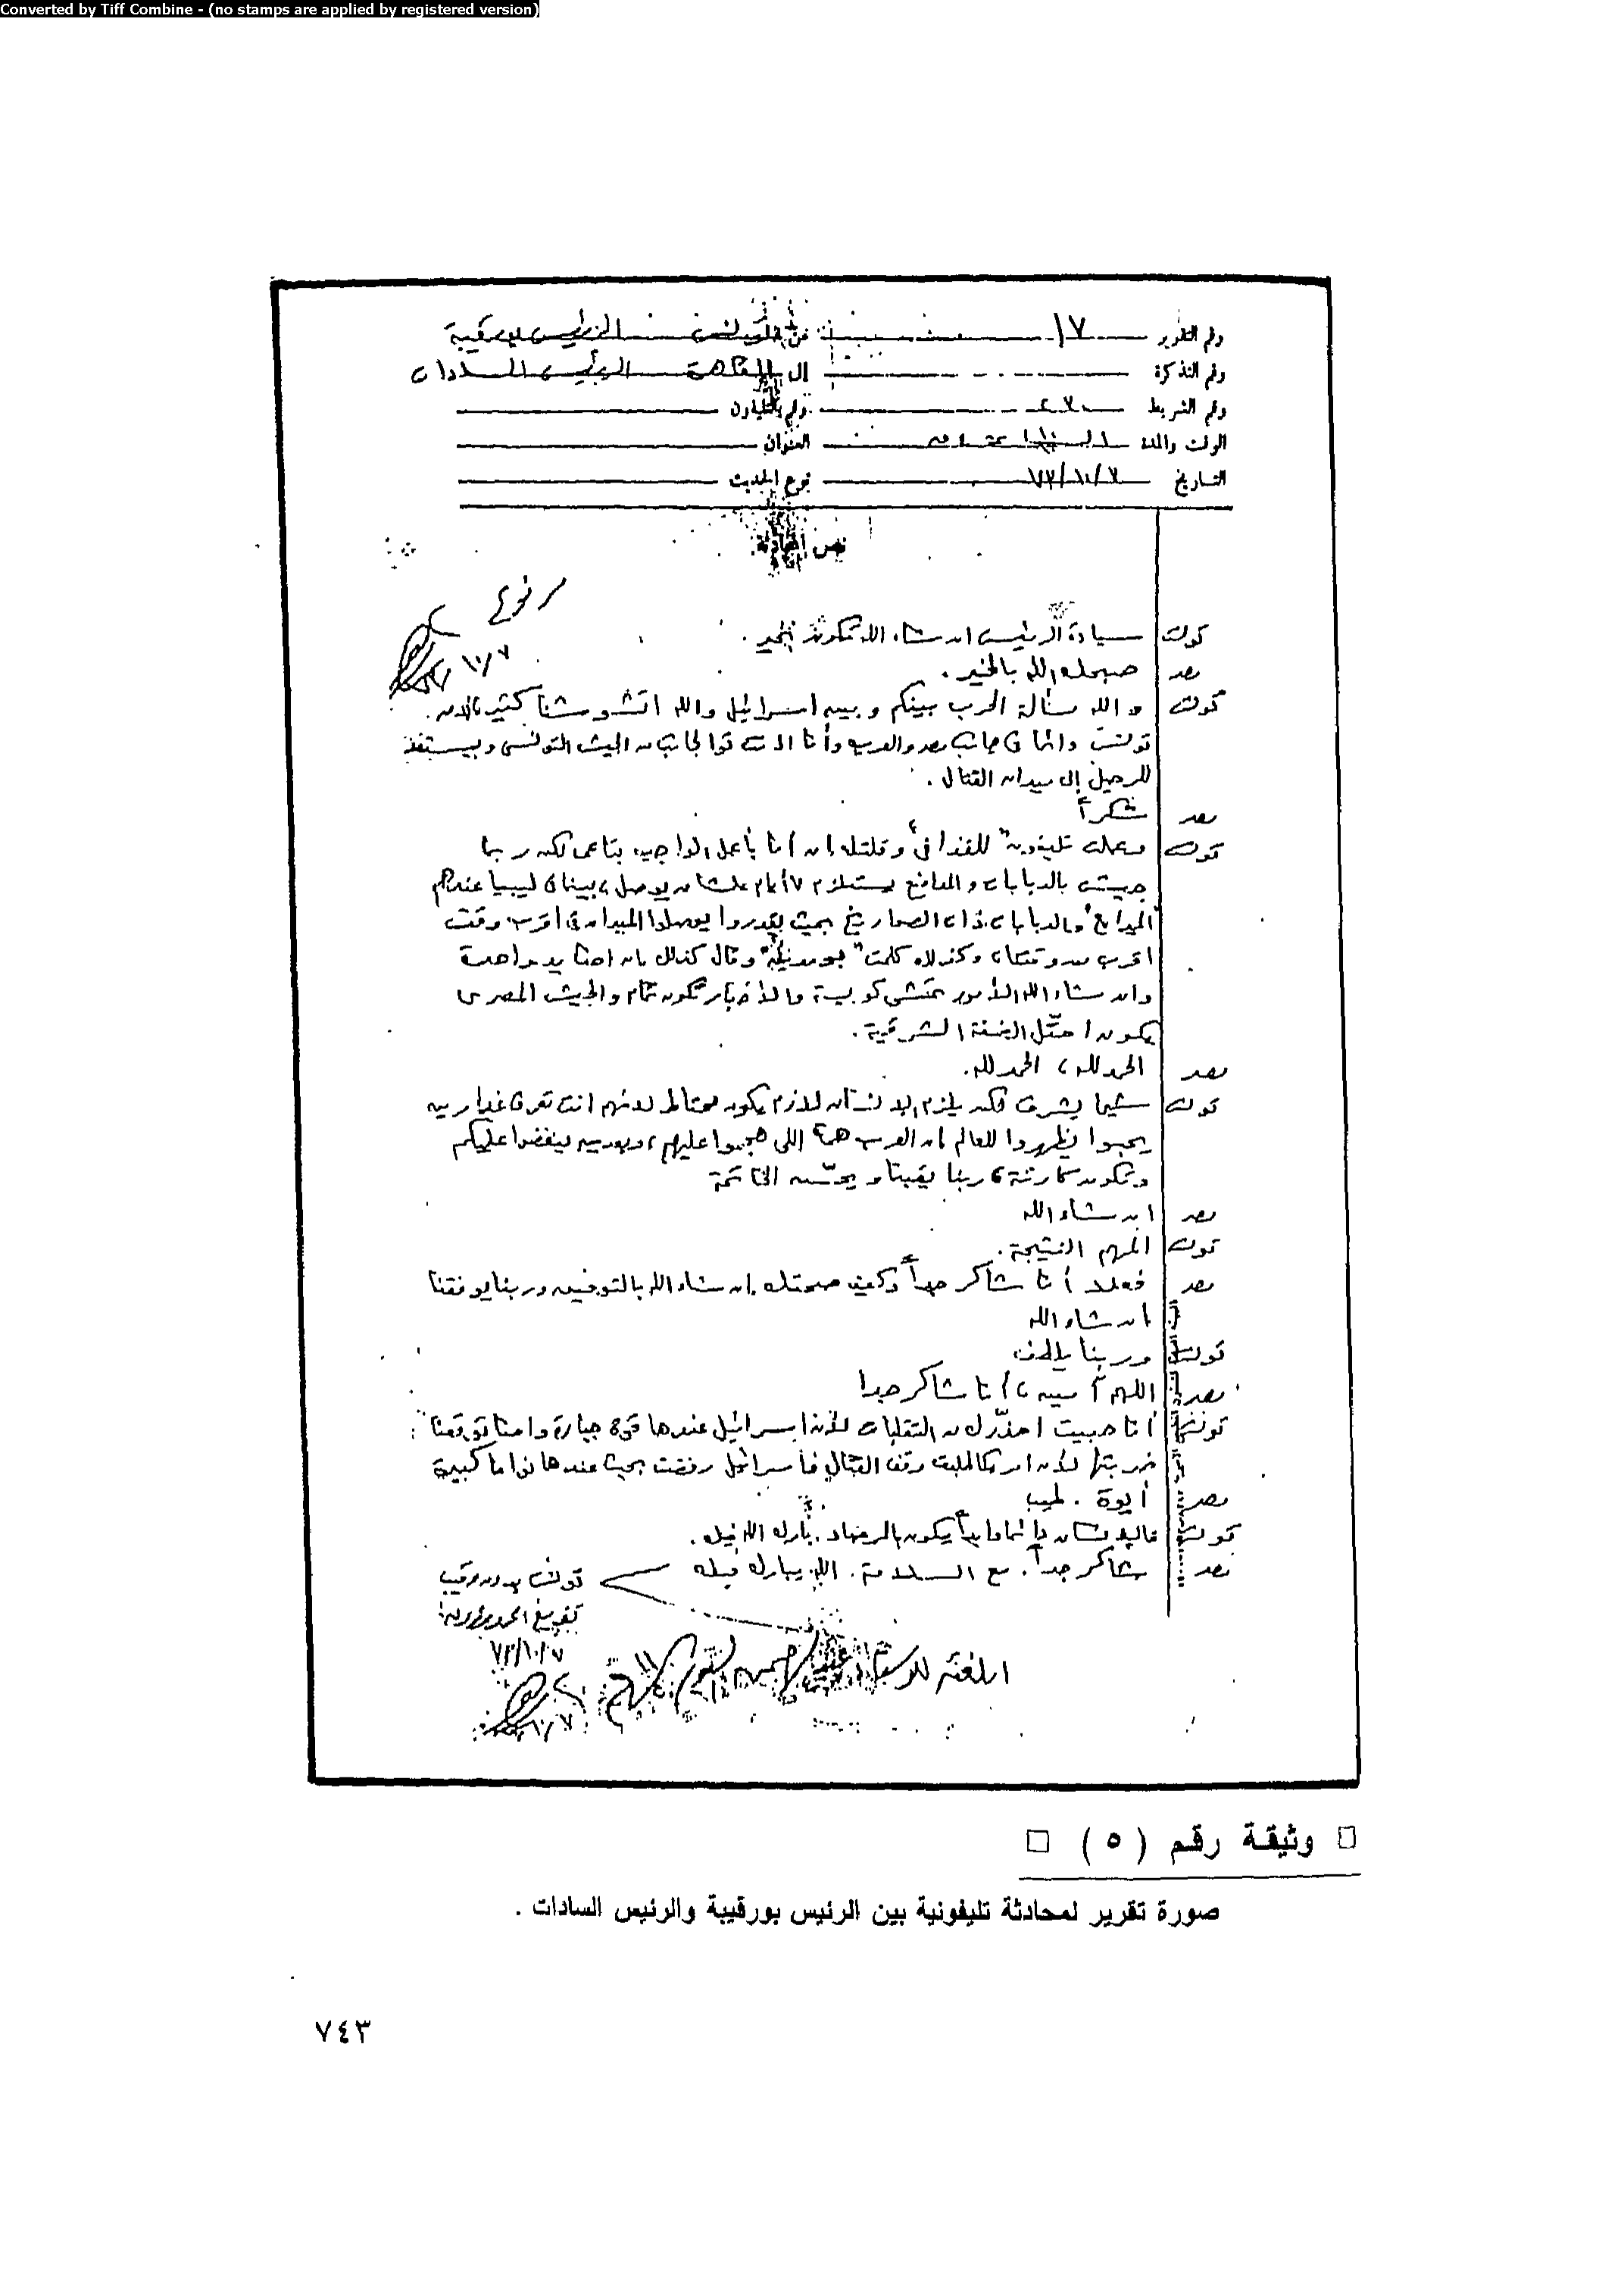 Converted by Tiff Combine - (no stamps are applied by registered version)
رقم التقرير ١٧ من تونس الرئيس بورقيبة
رقم التذكرة الى القاهرة الرئيس السادات
رقم الشريط رقم التليفون
الوقت والمدة العنوان
التاريخ ٧٣/١٠/٧ نوع الحديث
نص المحادثة
تونس سيادة الرئيس ان شاء الله تكون بخير .
مصر صبحك الله بالخير .
تونس والله مسألة الحرب بينكم وبين اسرائيل والله اتشوشنا كثير
تونس دائما في جانب مصر والعرب وأنا الجيش التونسي وبيستعد
للرحيل إلى ميدان القتال .
مصر شكراً
تونس وعملت تليفون "للقذافي" وقلتله ان أنا بأعمل الواجب بتاعى لكن ربما
جيش بالدبابات والمدافع يستلزم ٧ أيام علشان يوصل ، بينما في ليبيا عندهم
المدافع والدبابات ذات الصواريخ بحيث يقدروا يوصلوا الميدان في اقرب وقت
اقرب من وقتنا، وكذلك كلمت "بومدين" وقال كذلك بان احنا يد واحدة
وان شاء الله الأمور تمشى كويسة والأخبار تكون تمام والجيش المصرى
يكون احتل الضفة الشرقية .
مصر الحمد لله ، الحمد لله .
تونس شيئا يشرف لكن يلزم الإنسان لازم يكون محتاط لانهم انت تعرف غدارين
يحبوا يظهروا للعالم ان العرب همه اللى هجموا عليهم ، وبعدين ينقضوا عليكم
وتكون كارثة ، ربنا يقينا ويحسّن الخاتمة
مصر ان شاء الله
تونس المهم النتيجة .
مصر فعلا أنا شاكر جداً وكيف صحتك ان شاء الله بالتوفيق وربنا يوفقنا
ان شاء الله
تونس وربنا يلطف
مصر اللهم آمين ، أنا شاكر جدا
تونس أنا حبيت احذّرك من التقلبات لأن اسرائيل عندها قوة جبارة واحنا توقعنا
ضربتها لأن امريكا طلبت وقف القتال فأسرائيل رفضت بحيث عندها نواما كبيرة
مصر أيوة . طيب
تونس فالإنسان دائما يكون بالمرصاد . بارك الله فيك .
مصر شاكر جداً . مع السلامة . الله يبارك فيك
تونس بدون رقيب
٧٣/١٠/٧
□ وثيقة رقم ( ٥ ) □
صورة تقرير لمحادثة تليفونية بين الرئيس بورقيبة والرئيس السادات .
٧٤٣